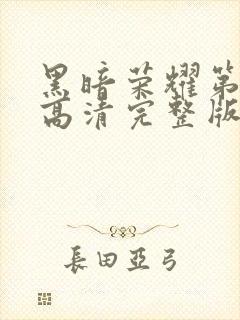 黑暗荣耀第
高清完整版
長田亞弓